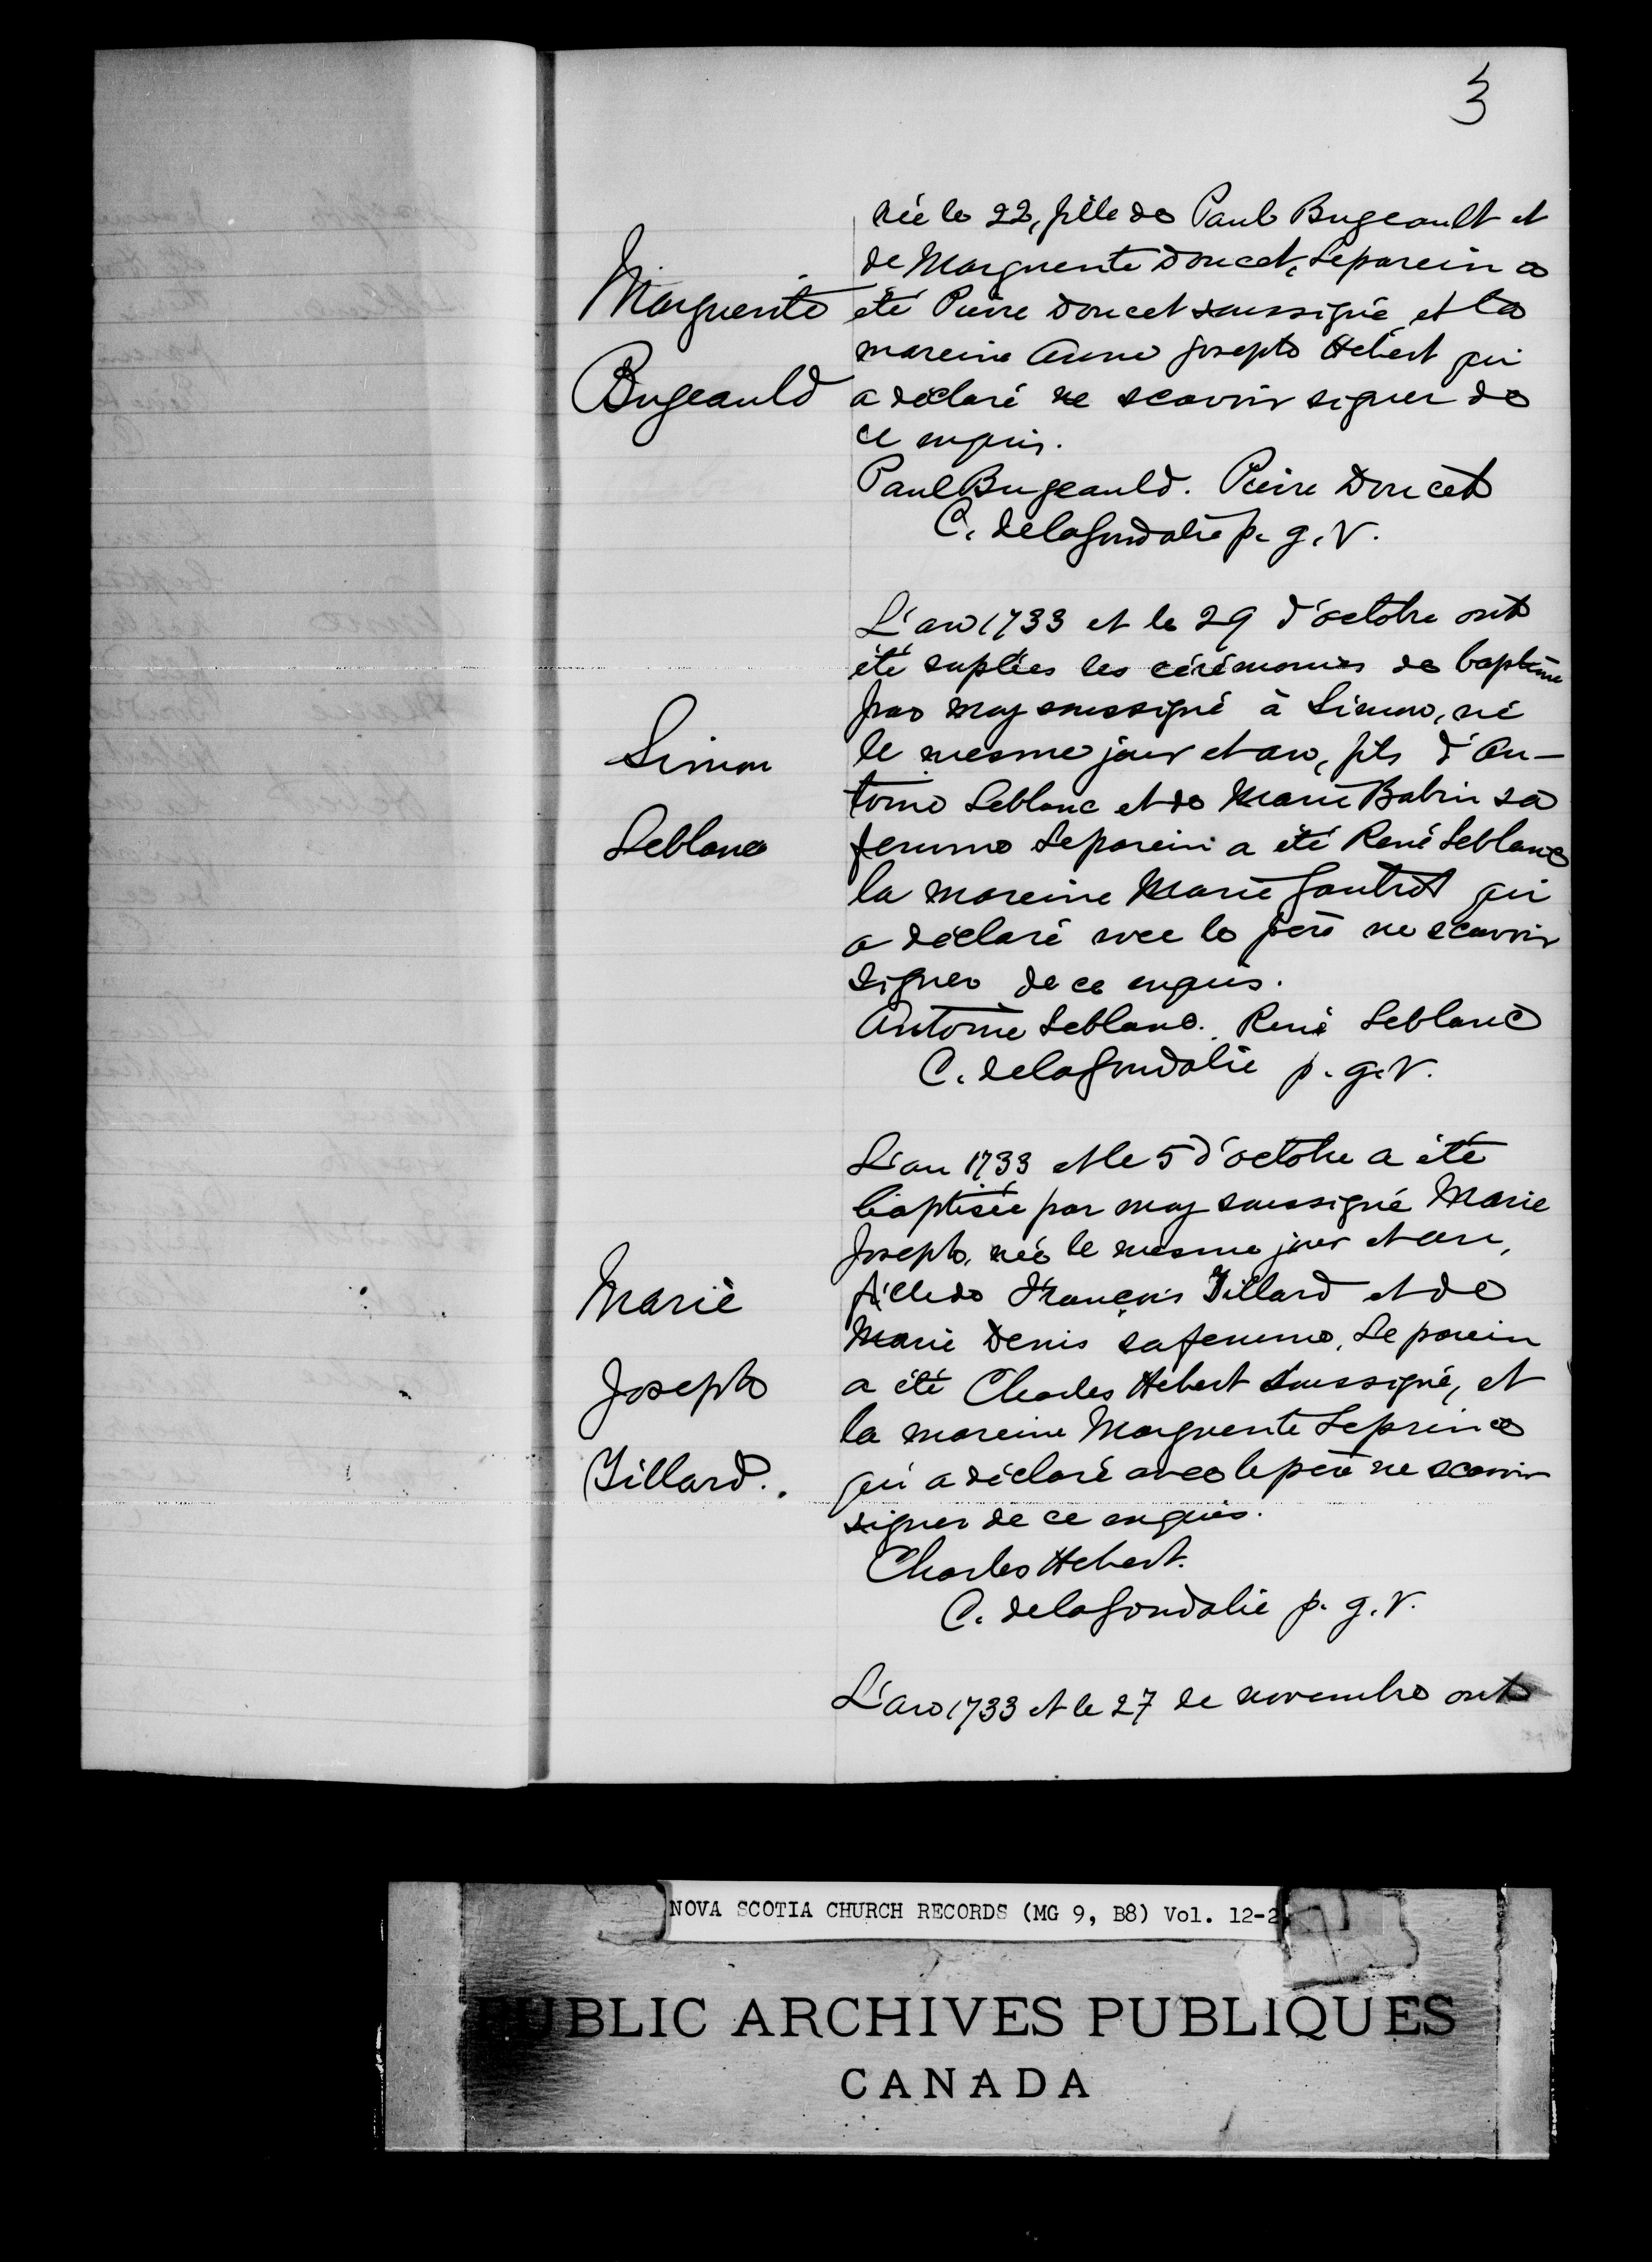 3
Marguerite
Bugeauld
née le 22, fille de Paul Bugeault et
de Marguerite Doucet, Le parein a
été Pierre Doucet soussigné et la
mareine Anne Joseph Hébert qui
a déclaré ne scavoir signer de
ce enquis.
Paul Bugeauld. Pierre Doucet
C. de la Goudalie p. g. V.
Simon
Leblanc
L'an 1733 et le 29 d'octobre ont
été suplées les cérémonies de baptême
par moy soussigné à Simon, né
le mesme jour et an, fils d'An-
toine Leblanc et de Marie Babin sa
femme Le parein a été René Leblanc
la mareine Marie Gautrot qui
a déclaré avec le père ne scavoir
signer de ce enquis.
Antoine Leblanc. René Leblanc
C. de la Goudalie p. g. V.
Marie
Joseph
Tillard.
L'an 1733 et le 5 d'octobre a été
baptisée par moy soussigné Marie
Joseph, née le mesme jour et an,
fille de François Tillard et de
Marie Denis sa femme, Le parein
a été Charles Hébert soussigné, et
la mareine Marguerite Leprince
qui a déclaré avec le père ne scavoir
signer de ce enquis.
Charles Hebert.
C. de la Goudalie p. g. V.
L'an 1733 et le 27 de novembre ont
NOVA SCOTIA CHURCH RECORDS (MG 9, B8) Vol. 12-2
PUBLIC ARCHIVES PUBLIQUES
CANADA